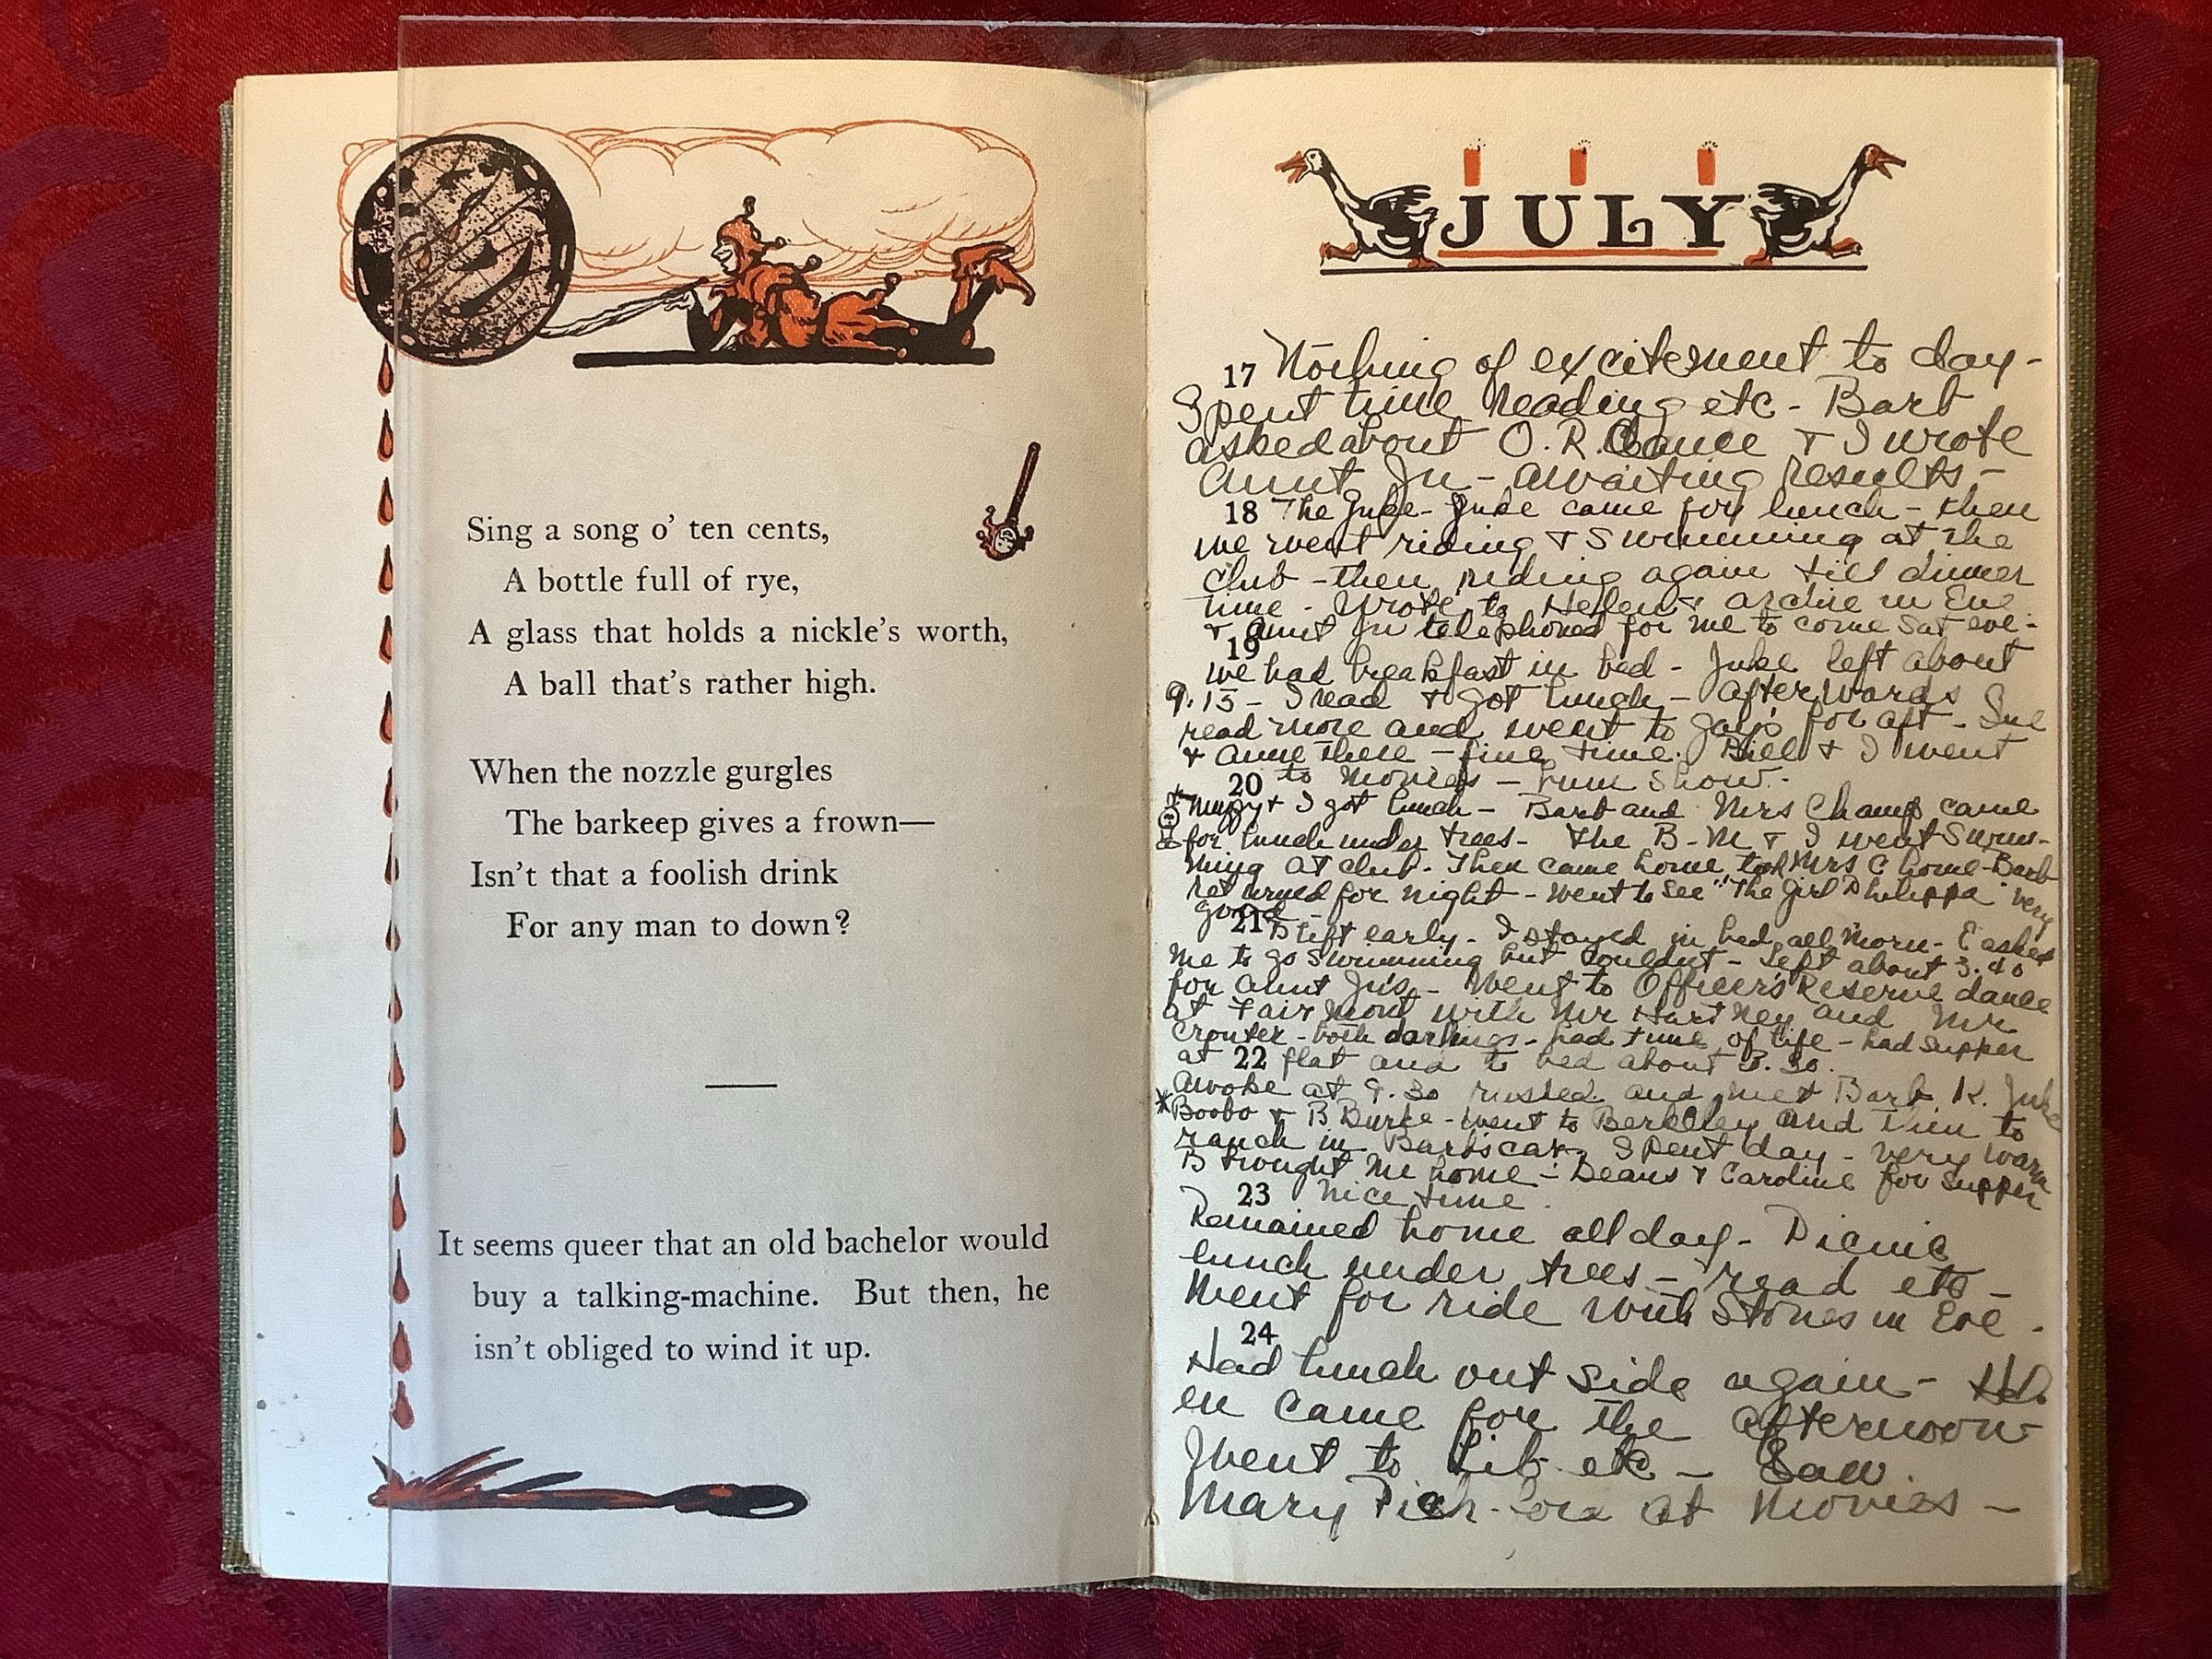 Sing a song o' ten cents,
A bottle full of rye,
A glass that holds a nickle's worth,
A ball that's rather high.
When the nozzle gurgles
The barkeep gives a frown—
Isn't that a foolish drink
For any man to down?
It seems queer that an old bachelor would
buy a talking-machine. But then, he
isn't obliged to wind it up.
JULY
17 Nothing of excitement to day-
Spent time reading etc - Barb
asked about O. R. dance + I wrote
Aunt Ju - awaiting results-
18 The Juke - Juke came for lunch - then
we went riding + swimming at the
Club - then riding again till dinner
time. Wrote to Hellen + Archie in Eve.
+ Aunt Ju telephoned for me to come Sat eve-
19
we had breakfast in bed - Juke left about
9.15 - I read + got lunch - afterwards
read more and went to Jay's for aft - Sue
+ Anne there - fine time. Bill + I went
20 to Movies - bum show.
+ I got lunch - Barb and Mrs Champ came
for lunch under trees - The B - M + I went swim-
ming at club. Then came home, took Mrs C home - Barb
returned for night - Went to see "The Girl Philippa" very
good -
21 B left early - I stayed in bed all morn - E asked
me to go swimming but couldn't - Left about 3.40
for Aunt Ju's - Went to Officer's Reserve dance
at Fairmont with Mr Hartney and Mr
Crouter - both darlings - had time of life - had supper
at 22 flat and to bed about 3.30.
Awoke at 9.30 rushed and met Barb K. Juke
*Boobo + B Burke - went to Berkeley and then to
ranch in Barb's car. Spent day - very warm
B brought me home - Deans + Caroline for supper
23 Nice time.
Remained home all day - Picnic
lunch under trees - read etc -
Went for ride with Stones in Eve.
24
Had lunch out side again - Hel
en came for the afternoon
Went to Lib etc - Saw
Mary Pickford at Movies -